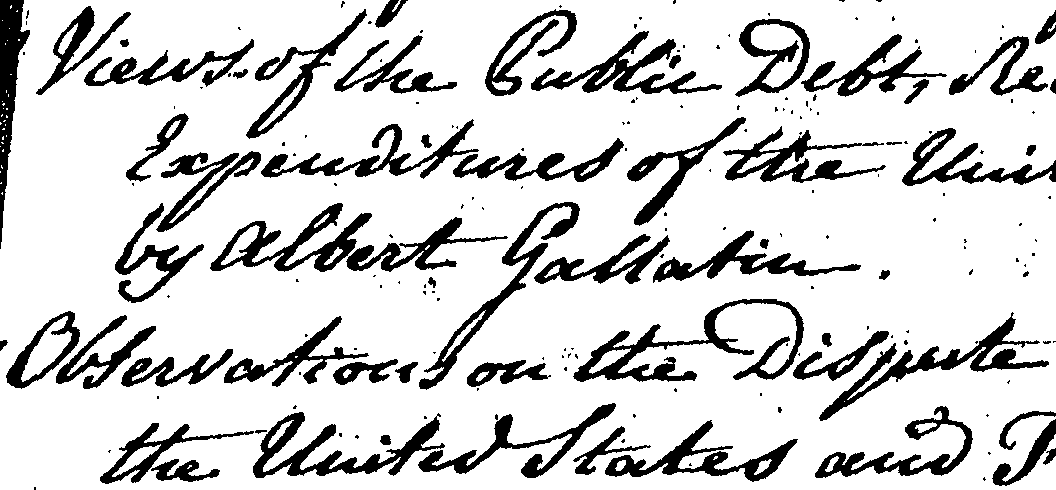 Views of the Public Debt, Re
Expenditures of the Uni
by Albert Gallatin.
Observations on the Dispute
the United States and F